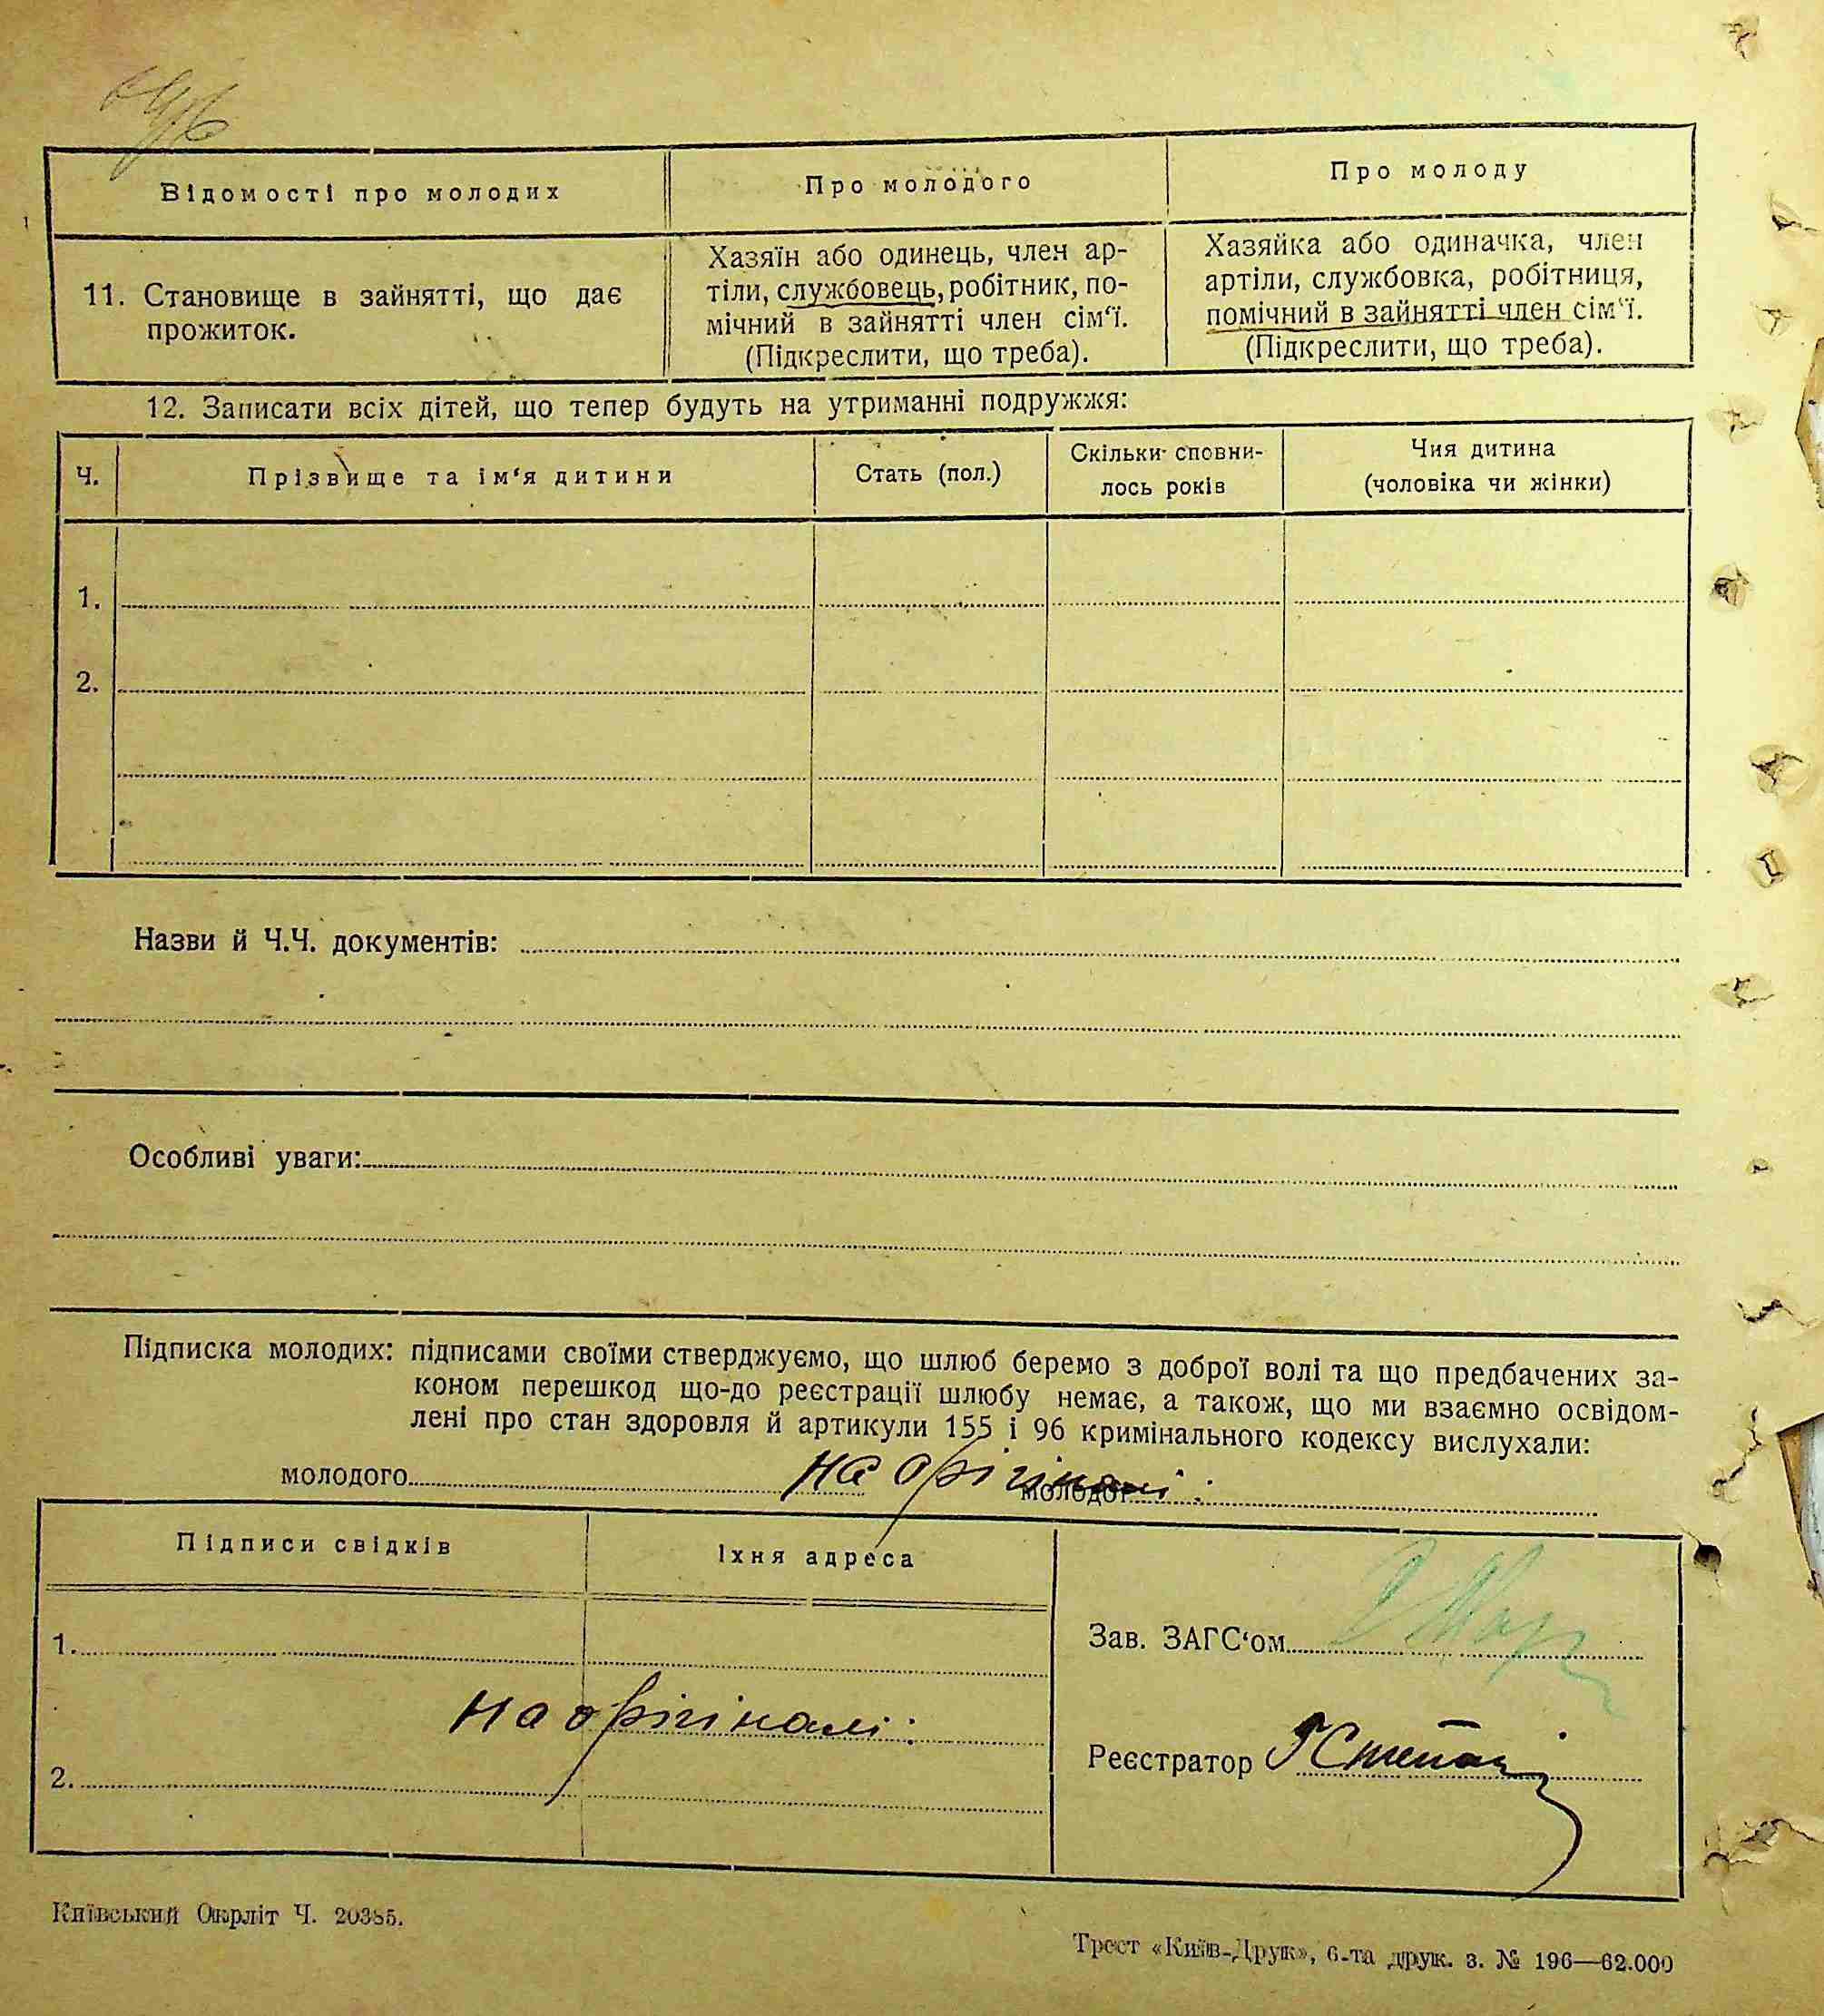 Відомості про молодих
Про молодого
Про молоду
11. Становище в зайнятті, що дає
прожиток.
Хазяїн або одинець, член ар-
тіли, службовець, робітник, по-
мічний в зайнятті член сім‘ї.
(Підкреслити, що треба).
Хазяйка або одиначка, член
артіли, службовка, робітниця,
помічний в зайнятті член сім‘ї.
(Підкреслити, що треба).
12. Записати всіх дітей, що тепер будуть на утриманні подружжя:
Ч.
Прізвище та ім‘я дитини
Стать (пол.)
Скільки сповни-
лось років
Чия дитина
(чоловіка чи жінки)
1.
2.
Назви й Ч.Ч. документів:
Особливі уваги:
Підписка молодих: підписами своїми стверджуємо, що шлюб беремо з доброї волі та що предбачених за-
коном перешкод що-до реєстрації шлюбу немає, а також, що ми взаємно освідом-
лені про стан здоровля й артикули 155 і 96 кримінального кодексу вислухали:
молодого
на орігіналі:
молодої
Підписи свідків
Їхня адреса
1.
на орігіналі:
2.
Зав. ЗАГС‘ом
Реєстратор
Київський Окрліт Ч. 20385.
Трест «Київ-Друк», 6-та друк. з. № 196—62.000